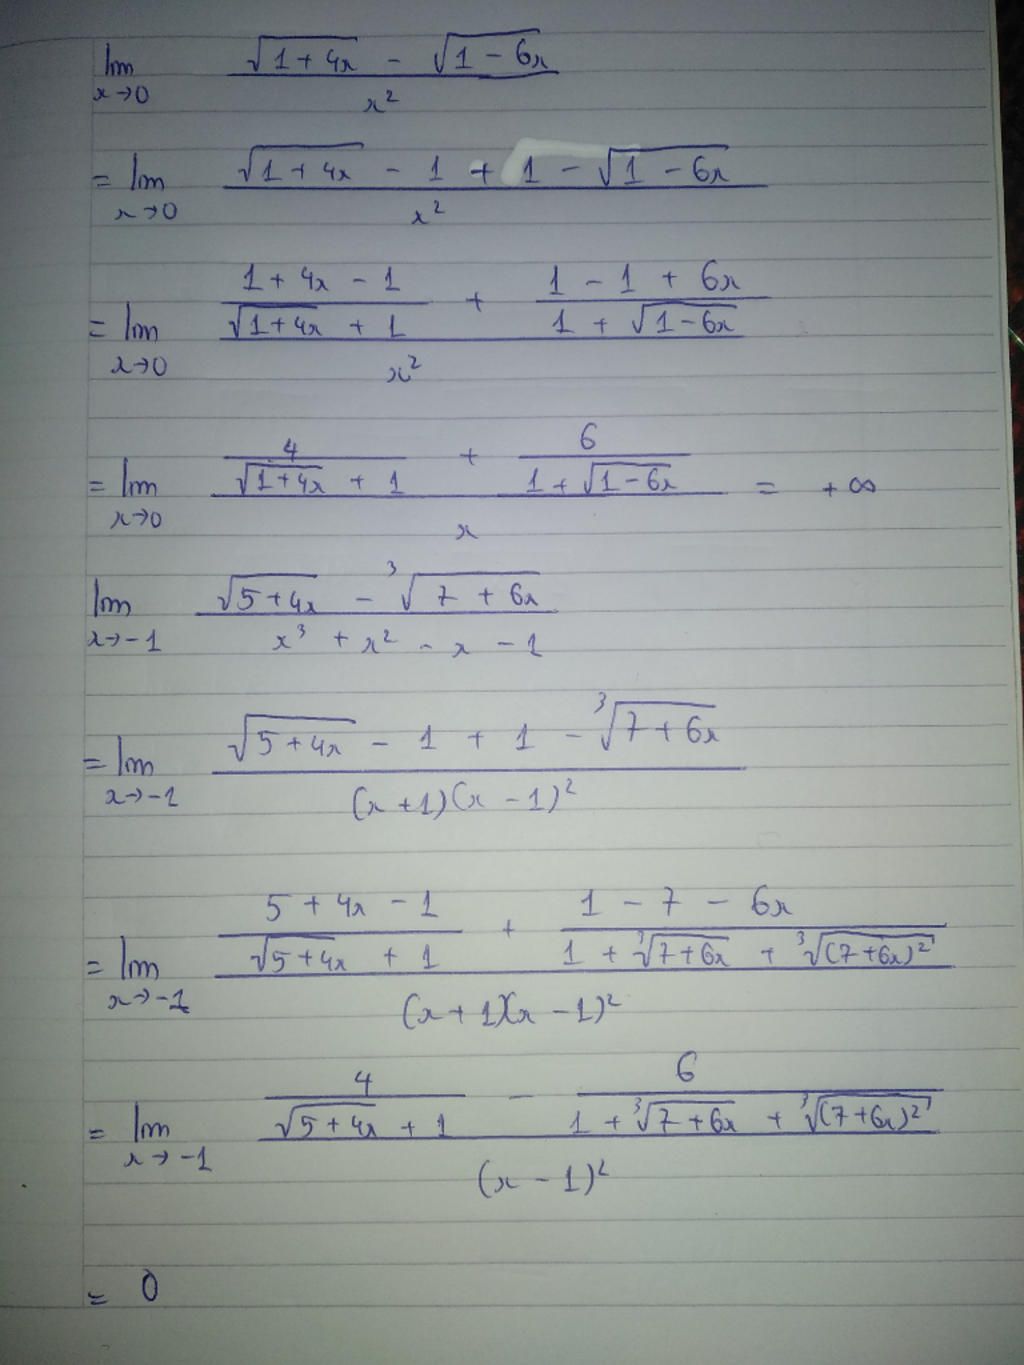 lim x→0 (√(1+4x) - √(1-6x)) / x²
= lim x→0 (√(1+4x) - 1 + 1 - √(1-6x)) / x²
= lim x→0 ((1+4x-1)/(√(1+4x) + 1) + (1-1+6x)/(1+√(1-6x))) / x²
= lim x→0 (4/(√(1+4x) + 1) + 6/(1+√(1-6x))) / x = +∞
lim x→-1 (√(5+4x) - ³√(7+6x)) / (x³ + x² - x - 1)
= lim x→-1 (√(5+4x) - 1 + 1 - ³√(7+6x)) / ((x+1)(x-1)²)
= lim x→-1 ((5+4x-1)/(√(5+4x) + 1) + (1-7-6x)/(1+³√(7+6x) + ³√((7+6x)²))) / ((x+1)(x-1)²)
= lim x→-1 (4/(√(5+4x) + 1) - 6/(1+³√(7+6x) + ³√((7+6x)²))) / (x-1)²
= 0